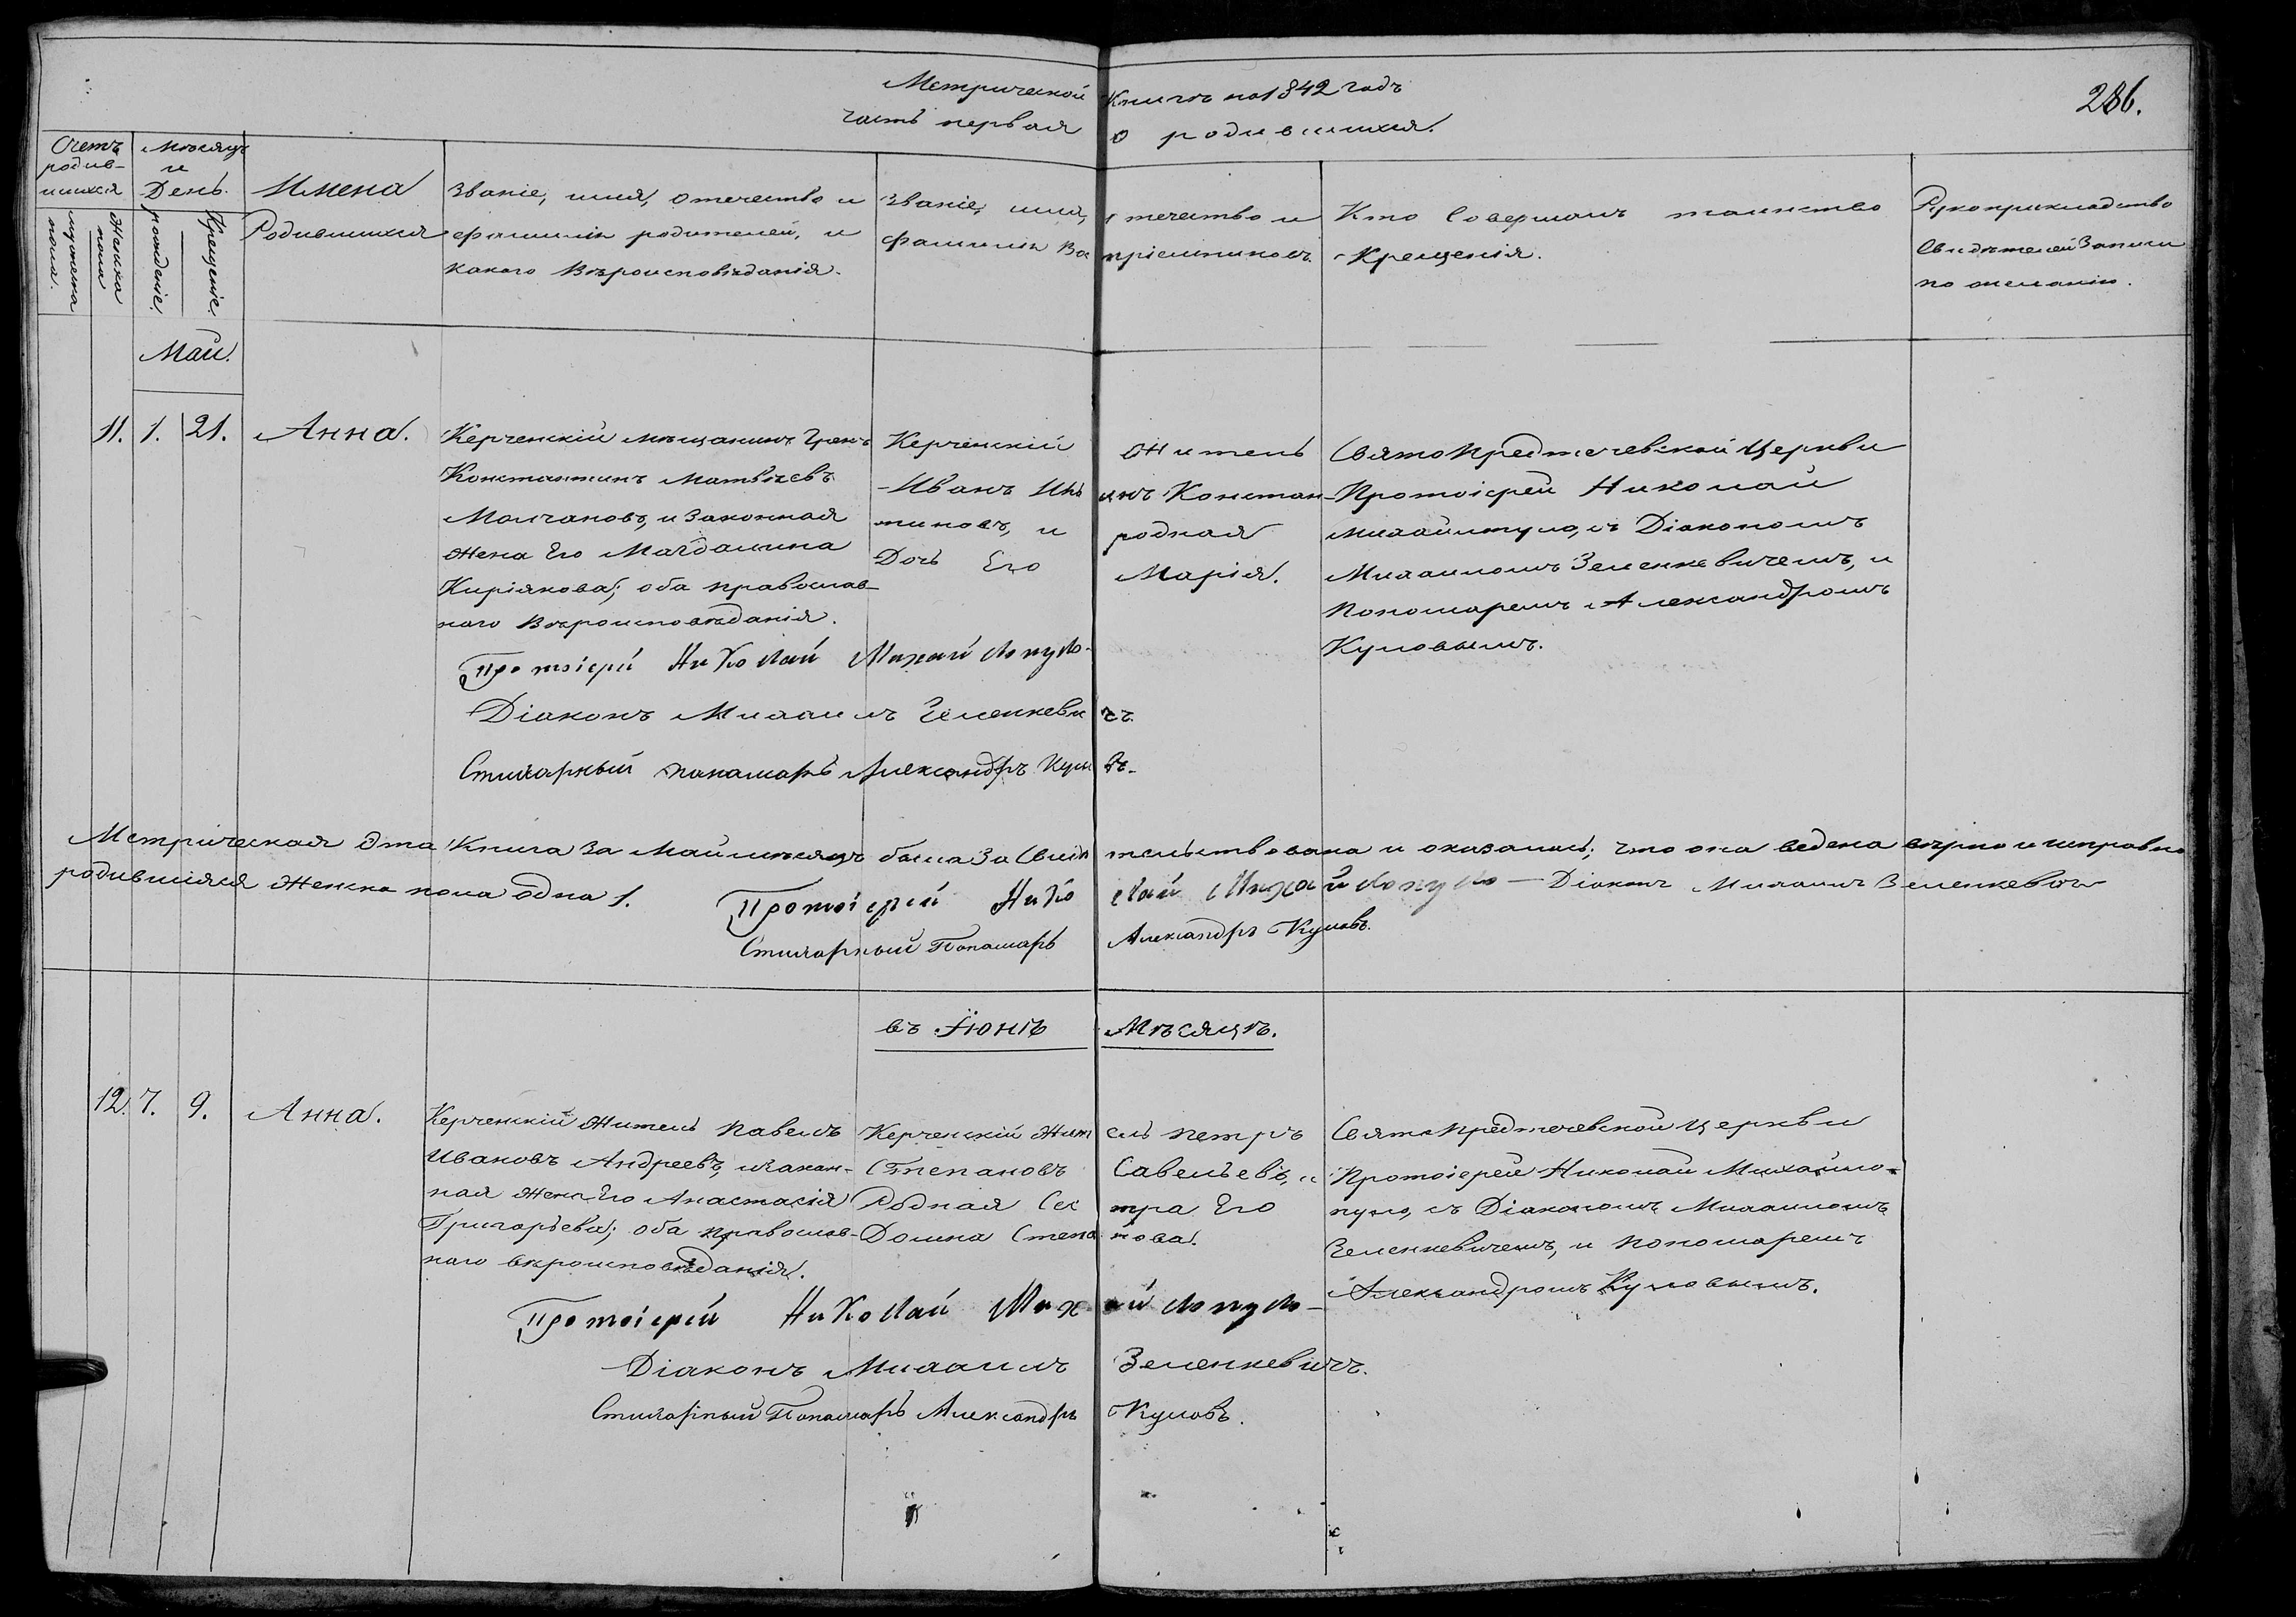 Метрической Книги на 1842 годъ
286.
часть первая о родившихся.
Счетъ родив-шихся
мужеска пола.
женска пола
Мѣсяцъ и День.
рожденіе.
Крещеніе.
Имена
Родившихся
Званіе, имя, отечество и
фамилія родителей, и
какого вѣроисповѣданія.
Званіе, имя, отечество и
фамилія воспріемниковъ.
Кто Совершалъ таинство
Крещенія.
Рукоприкладство
Свидѣтелей записи
по желанію.
Май.
11. 1. 21. Анна.
Керченскій мѣщанинъ Грекъ
Константинъ Матвѣевъ
Молчановъ, и Законная
жена Его Магдалина
Киріякова; оба православ-
наго вѣроисповѣданія.
Керченскій житель
Иванъ Констан-
тиновъ, и родная
Дочь Его Марія.
СвятоПредтечевской Церкви
Протоіерей Николай
Михайлопуло, съ Діакономъ
Михаиломъ Зеленкевичемъ, и
Пономаремъ Александромъ
Куловымъ.
Протоіерей Николай Михайлопуло-
Діаконъ Михаилъ Зеленкевичъ.
Стихарный панамарь Александръ
Метрическая эта Книга за Май мѣсяцъ была засвидѣтельствована и оказалась; что она ведена вѣрно и исправно
родившіяся женска пола одна 1. Протоіерей Николай Михайлопуло — Діаконъ Михаилъ Зеленкевичъ
Стихарный Понамарь Александръ Куловъ.
въ Іюнѣ Мѣсяцѣ.
12. 7. 9. Анна.
Керченскій житель Павелъ
Ивановъ Андреевъ, и закон-
ная жена Его Анастасія
Григорьева; оба православ-
наго вѣроисповѣданія.
Керченскій житель Петръ
Степановъ Савельевъ, и
Родная Сестра Его
Домна Степанова.
СвятоПредтечевской Церкви
Протоіерей Николай Михайло-
пуло, съ Діакономъ Михаиломъ
Зеленкевичемъ, и Пономаремъ
Александромъ Куловымъ.
Протоіерей Николай Михайлопуло-
Діаконъ Михаилъ Зеленкевичъ.
Стихарный Понамарь Александръ Куловъ.